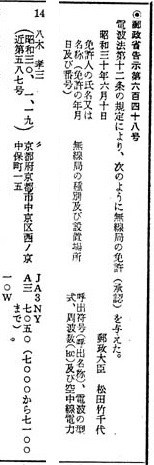 ◉郵政省告示第六百四十八号
電波法第十二条の規定により、次のように無線局の免許(承認)を与えた。
昭和三十年六月十日
郵政大臣 松田竹千代
免許人の氏名又は
名称(免許の年月
日及び番号)
無線局の種別及び設置場所
呼出符号(呼出名称)、電波の型
式、周波数(kc)及び空中線電力
14
八木 孝三
(昭和三〇、一、一九)
近第五八七号
〃
京都府京都市中京区西ノ京
中保町一五
JA3NY
A三 七〇五〇(七〇〇〇から七一〇〇
まで)。
一〇W